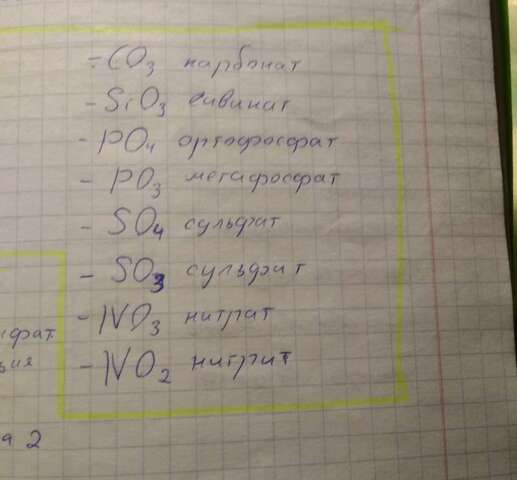 -CO3 карбонат
-SiO3 сивинат
-PO4 ортофосфат
-PO3 метафосфат
-SO4 сульфат
-SO3 сульфит
-NO3 нитрат
-NO2 нитрит
2